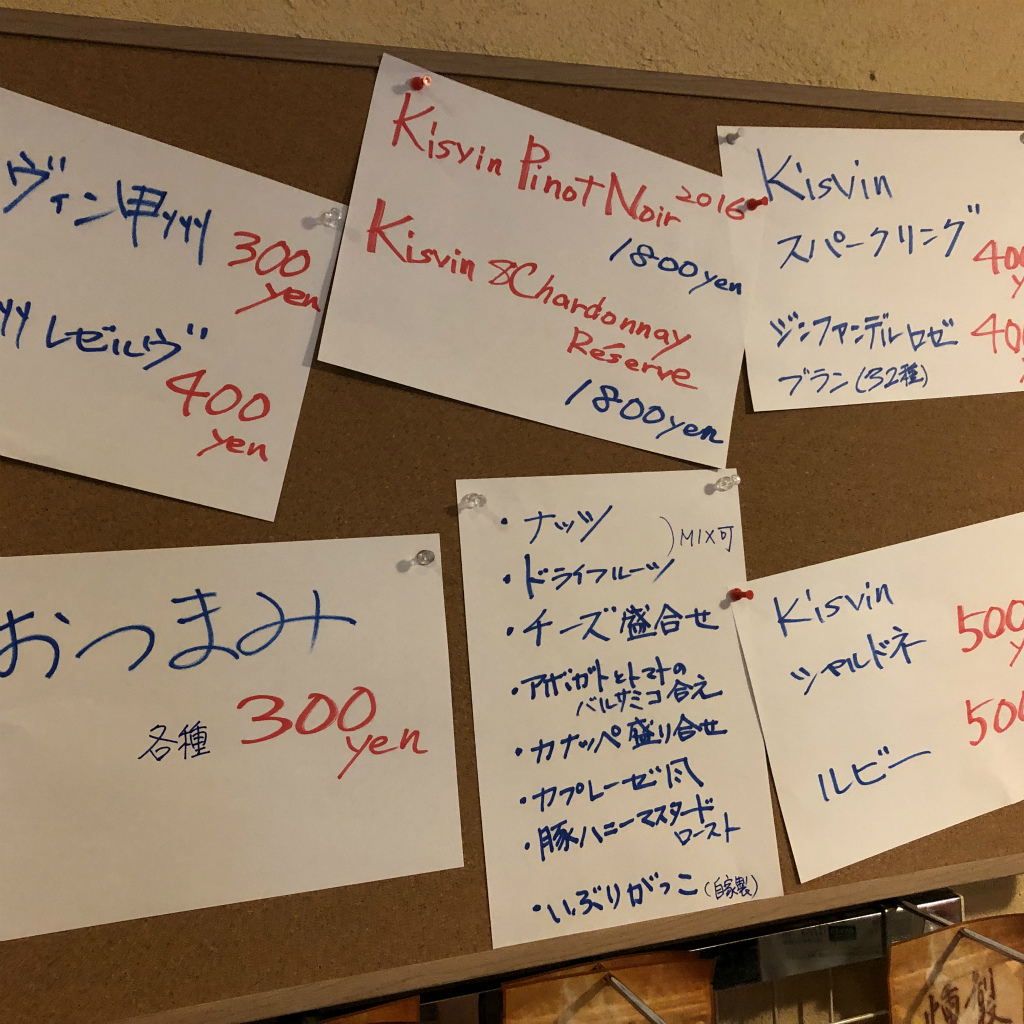 ヴィン甲州
300
yen
州 レゼルヴ
400
yen
Kisvin Pinot Noir 2016
1800yen
Kisvin & Chardonnay
Réserve
1800yen
Kisvin
スパークリング
400
ジンファンデルロゼ
ブラン(32種)
おつまみ
各種 300
yen
・ナッツ
)MIX可
・ドライフルーツ
・チーズ盛合せ
・アボガトとトマトの
バルサミコ合え
・カナッペ盛り合せ
・カプレーゼ風
・豚ハニーマスタード
ロースト
・いぶりがっこ(自家製)
Kisvin
シャルドネ
500
ルビー
燻製